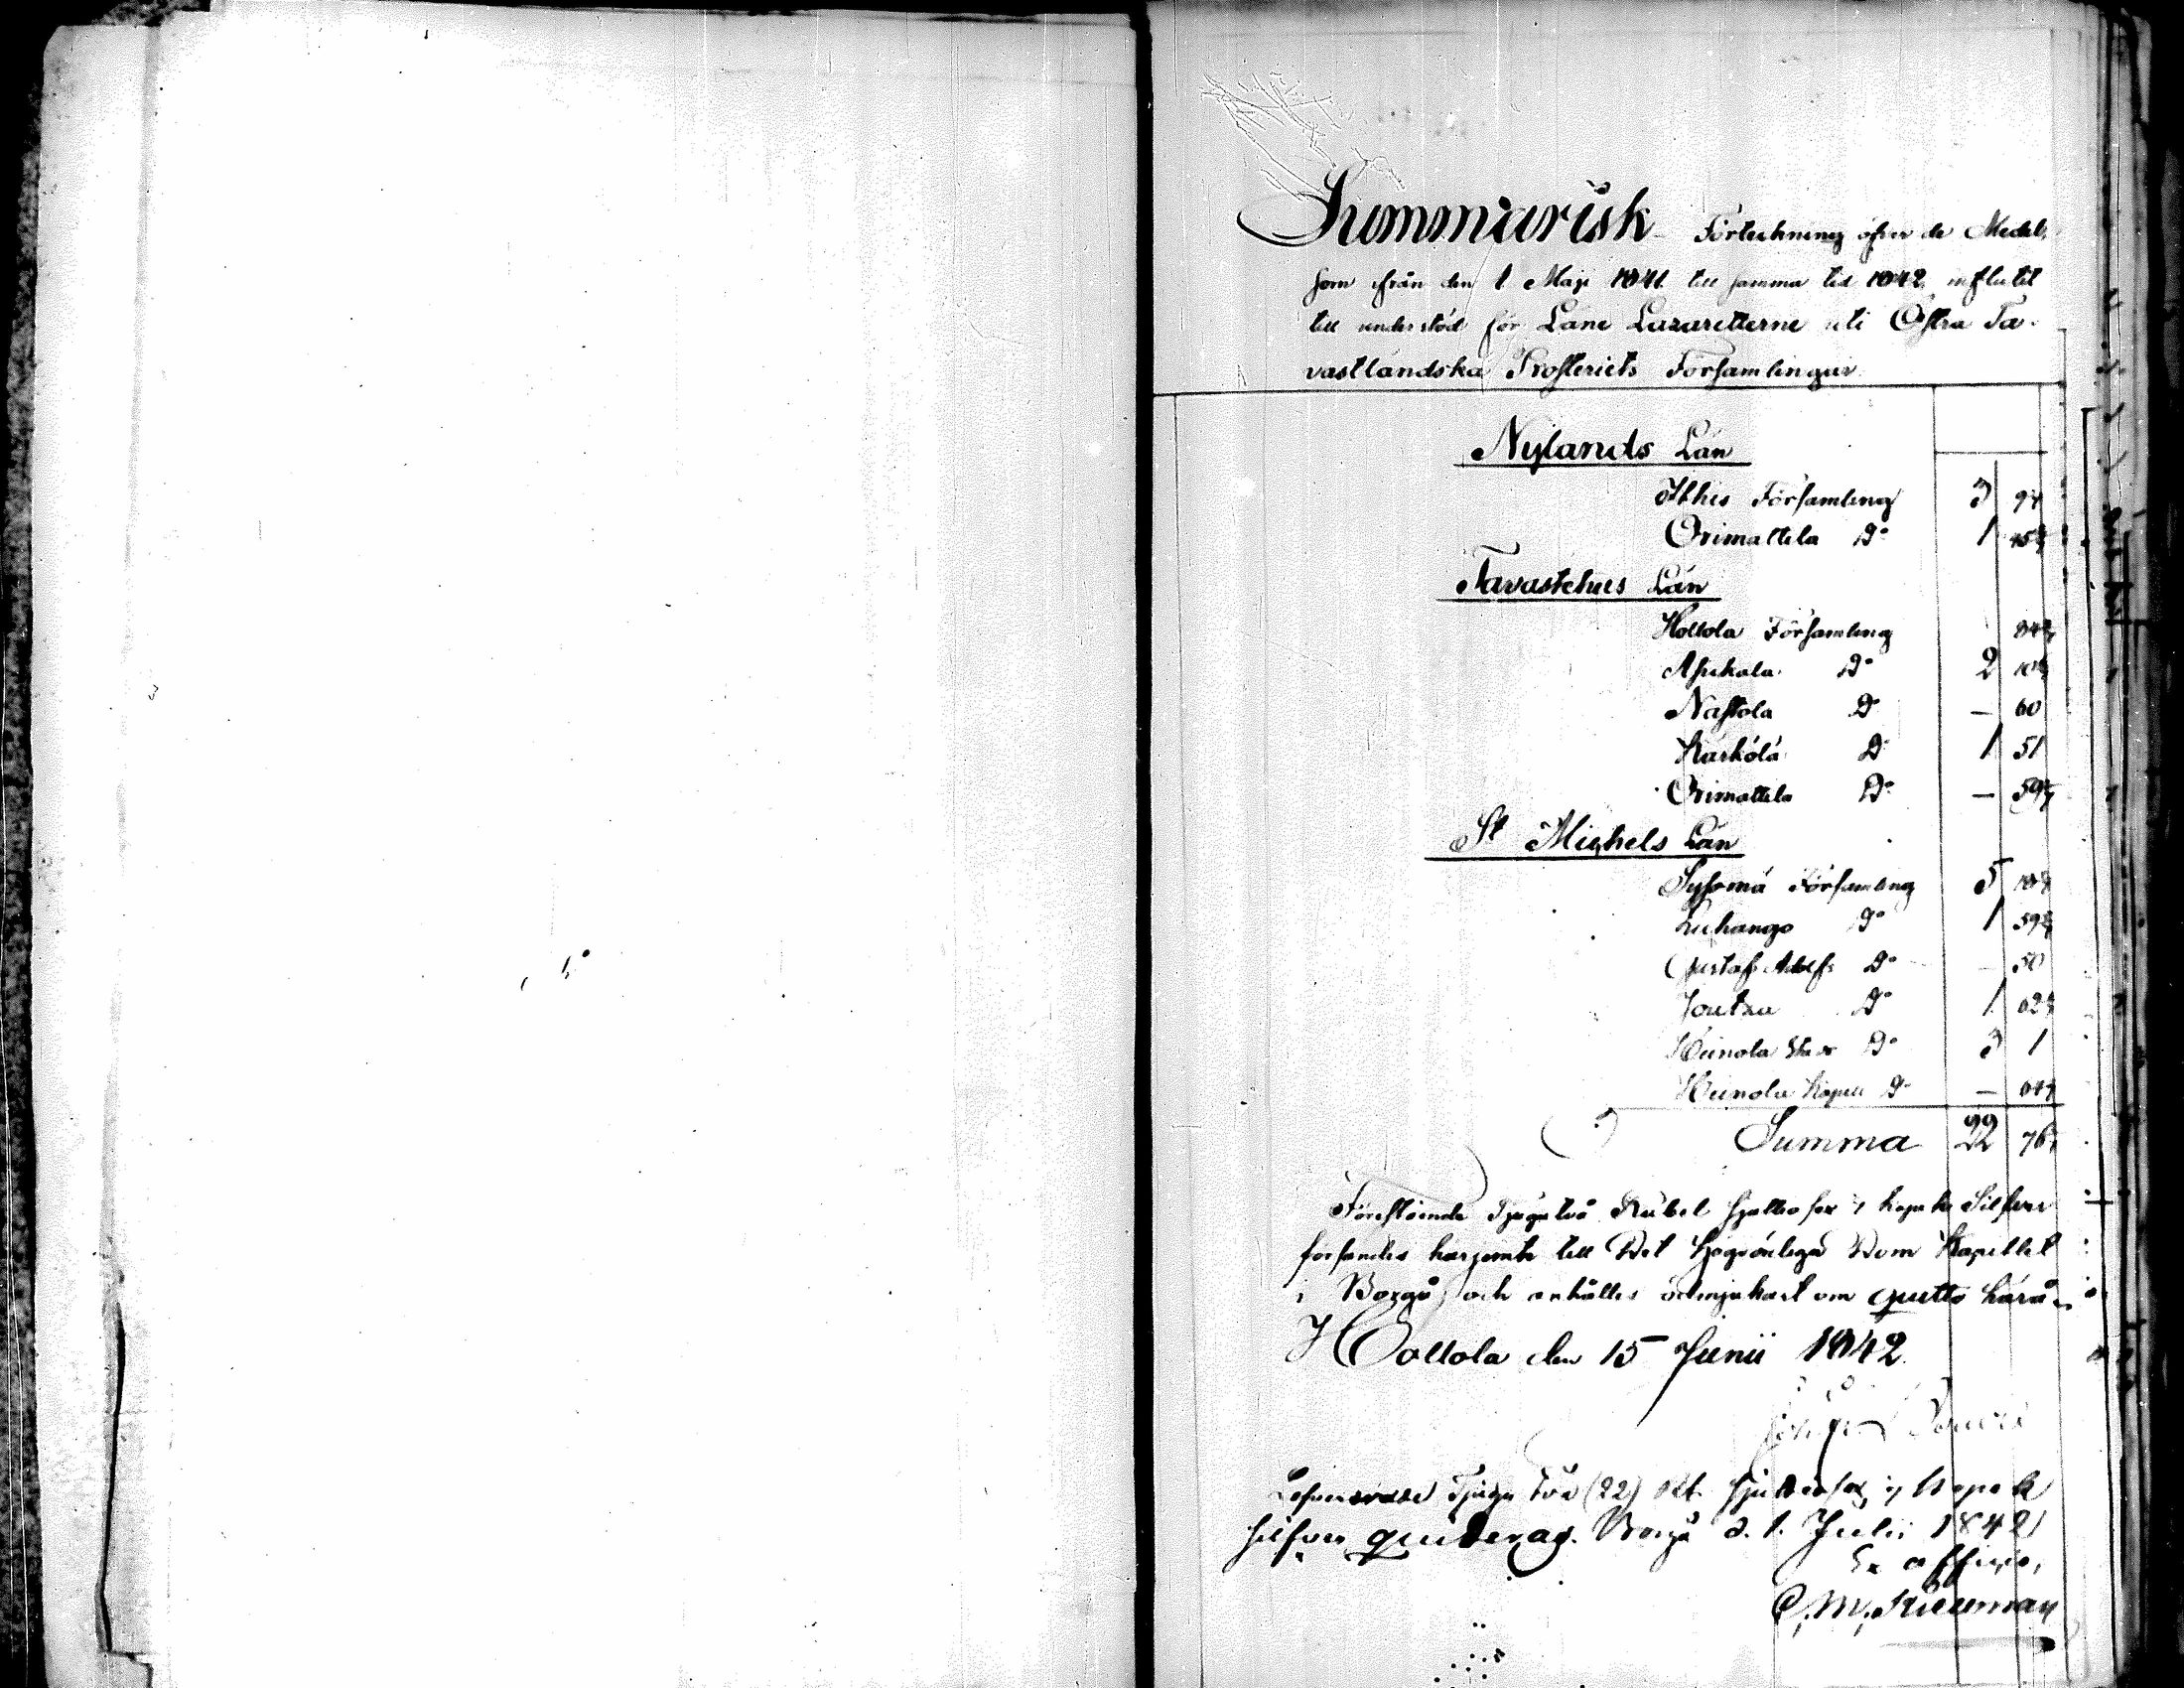 Summarisk Förteckning öfver de Medel,
som ifrån den 1 Maji 1841 till samma tid 1842 influtit
till understöd för Läns Lazaretterne uti Östra Ta-
vastländska Prosteriets Församlingar.
Nylands Län
Itthis Församling 3 94
Orimattila Do 1
Tavastehus Län
Hollola Församling
Asikala Do 2
Nastola Do — 60
Kärkölä Do 1 51
Orimattila Do —
St Michels Län
Sysmä Församling 5
Luhango Do 1
Gustaf Adolfs Do 50
Joutza Do 1
Heinola Stads Do 3 1
Heinola Kapell Do —
Summa 22
Förestående Tjugutvå Rubel sjuttiosex Kopek Silfver
försändes härjemte till Det Högvördiga Dom Kapitlet
i Borgå, och anhålles ödmjukast om quitto härå.
Hollola den 15 Junii 1842.
Tjugu två (22) Rub. sjuttiosex Kopek
silfver quiteras. Borgå d. 1. Julii 1842
Ex officio,